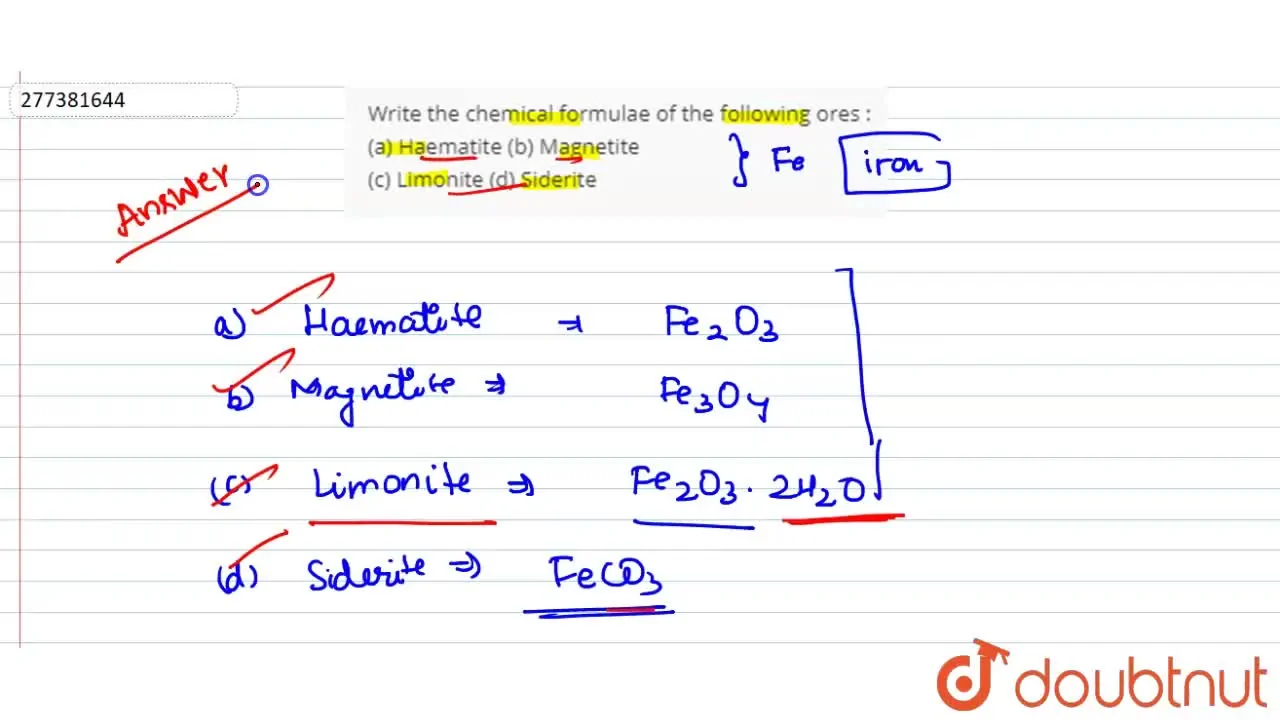 277381644
Write the chemical formulae of the following ores :
(a) Haematite (b) Magnetite
(c) Limonite (d) Siderite
} Fe iron
Answer
a) Haematite → Fe2O3
b) Magnetite ⇒ Fe3O4
(c) Limonite ⇒ Fe2O3 . 2H2O
(d) Siderite ⇒ FeCO3
doubtnut